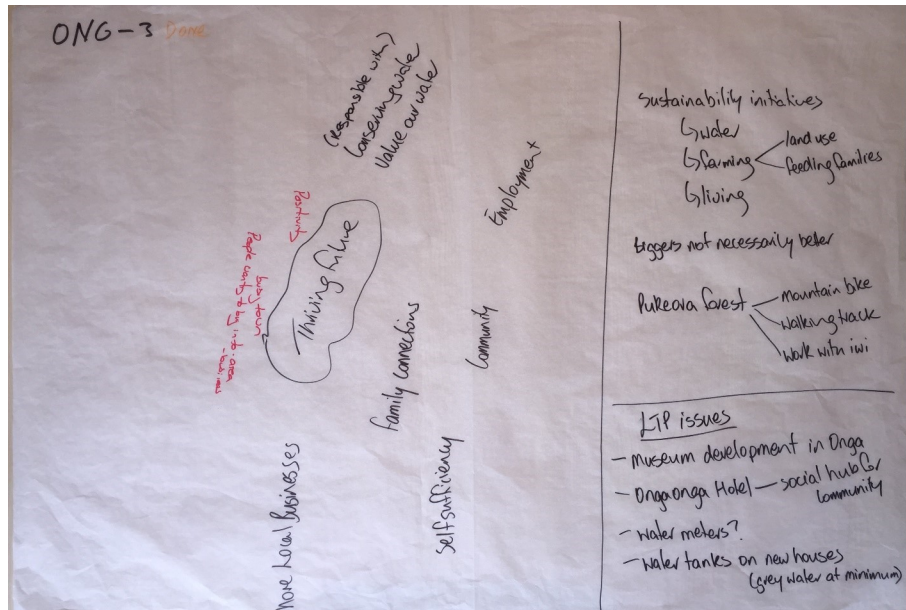 ONG-3 DONE
(Responsible with)
Conserving water
Value our water
Employment
Positivity
Thriving future
busy town
People wanting to buy in to area
- business
Family connections
Community
Self sufficiency
More Local Businesses
Sustainability initiatives
↳ water
↳ farming
land use
feeding families
↳ living
Biggers not necessarily better
Pukeora forest
mountain bike
walking track
work with iwi
LTP issues
- Museum development in Onga
- OngaOnga Hotel - social hub for
community
- water meters?
- Water tanks on new houses
(grey water at minimum)